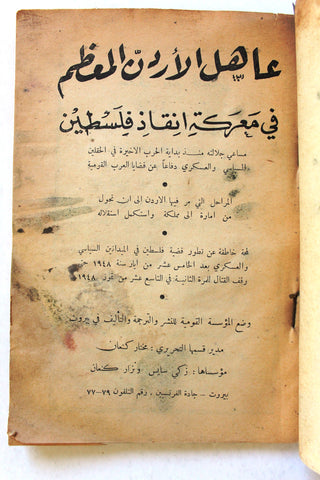 عاهل الأردن المعظم
في معركة إنقاذ فلسطين
مساعي جلالته منذ بداية الحرب الاخيرة في الحقلين
السياسي والعسكري دفاعاً عن قضايا العرب القومية
المراحل التي مر فيها الاردن الى ان تحول
من امارة الى مملكة واستكمل استقلاله
لمحة خاطفة عن تطور قضية فلسطين في الميدانين السياسي
والعسكري بعد الخامس عشر من ايار سنة ١٩٤٨ حتى
وقف القتال للمرة الثانية في التاسع عشر من تموز ١٩٤٨
وضع المؤسسة القومية للنشر والترجمة والتأليف في بيروت
مدير قسمها التحريري : مختار كنعان
مؤسساها : زكي سابس ونزار كنعان
بيروت - جادة الفرنسيين ، رقم التلفون ٧٩-٧٧